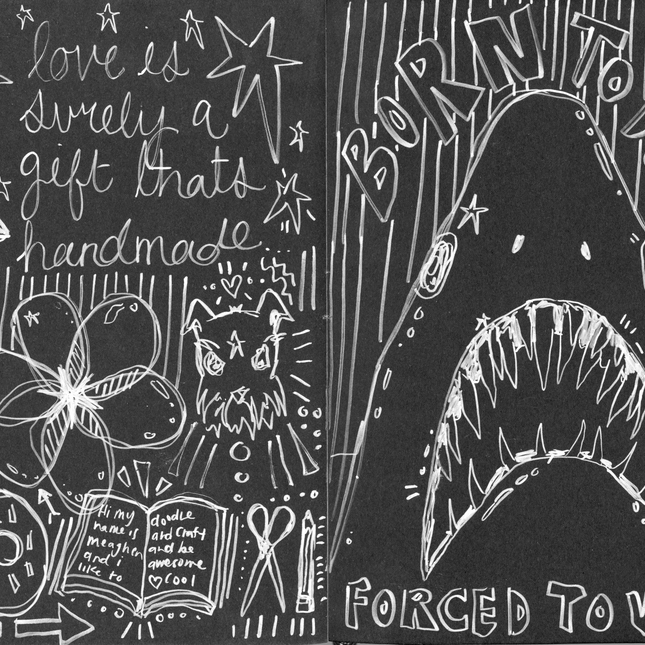 love is
surely a
gift thats
handmade
Hi my
name is
meaghen
and i
like to
doodle
and craft
and be
awesome
♡ cool
BORN TO
FORCED TO